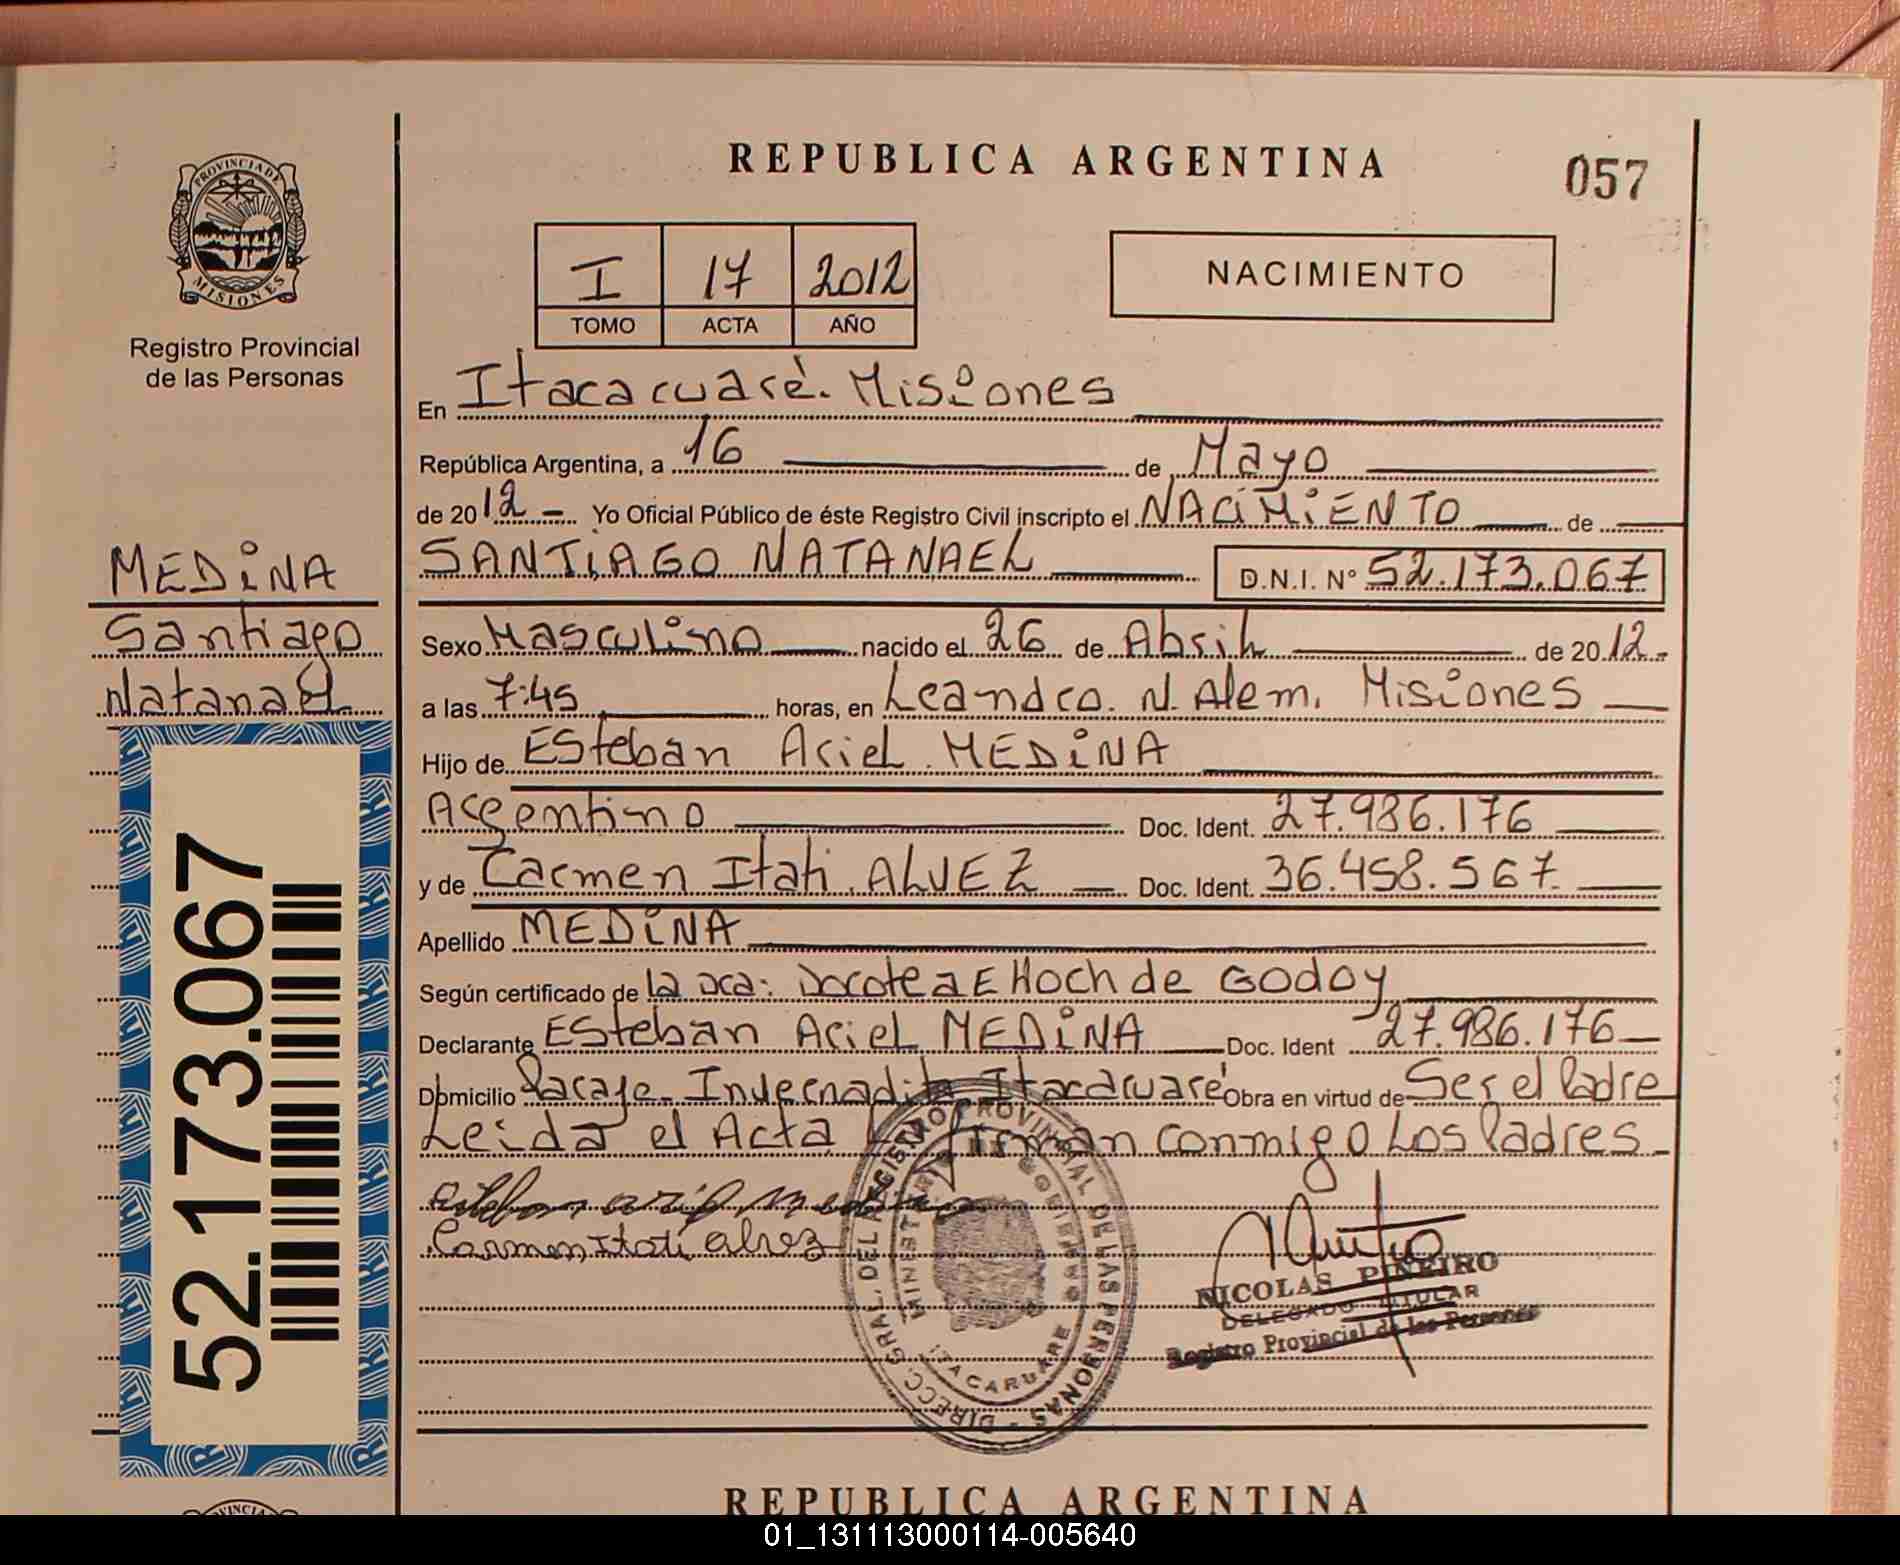 PROVINCIA DE
MISIONES
Registro Provincial
de las Personas
MEDINA
Santiago
Natanael
52.173.067
REPUBLICA ARGENTINA
057
I 17 2012
TOMO ACTA AÑO
NACIMIENTO
En Itacacuaré. Misiones
República Argentina, a 16 de Mayo
de 2012 - Yo Oficial Público de éste Registro Civil inscripto el NACIMIENTO de
SANTIAGO NATANAEL D.N.I. N° 52.173.067
Sexo Masculino nacido el 26 de Abril de 2012-
a las 7:45 horas, en Leandro. N. Alem. Misiones
Hijo de Esteban Ariel MEDINA
Argentino Doc. Ident. 27.986.176
y de Carmen Itati ALVEZ Doc. Ident. 36.458.567
Apellido MEDINA
Según certificado de la Dra: Dorotea E Hoch de Godoy
Declarante Esteban Ariel MEDINA Doc. Ident 27.986.176
Domicilio Paraje Invernadita Itacaruaré Obra en virtud de Ser el Padre
Leida el Acta firman conmigo Los Padres
Esteban ariel medina
Carmen Itati alvez
DIRECC. GRAL. DEL REGISTRO PROVINCIAL DE LAS PERSONAS -
MINISTERIO DE GOBIERNO
ITACARUARE
NICOLAS PIÑEIRO
DELEGADO TITULAR
Registro Provincial de las Personas
REPUBLICA ARGENTINA
01_131113000114-005640